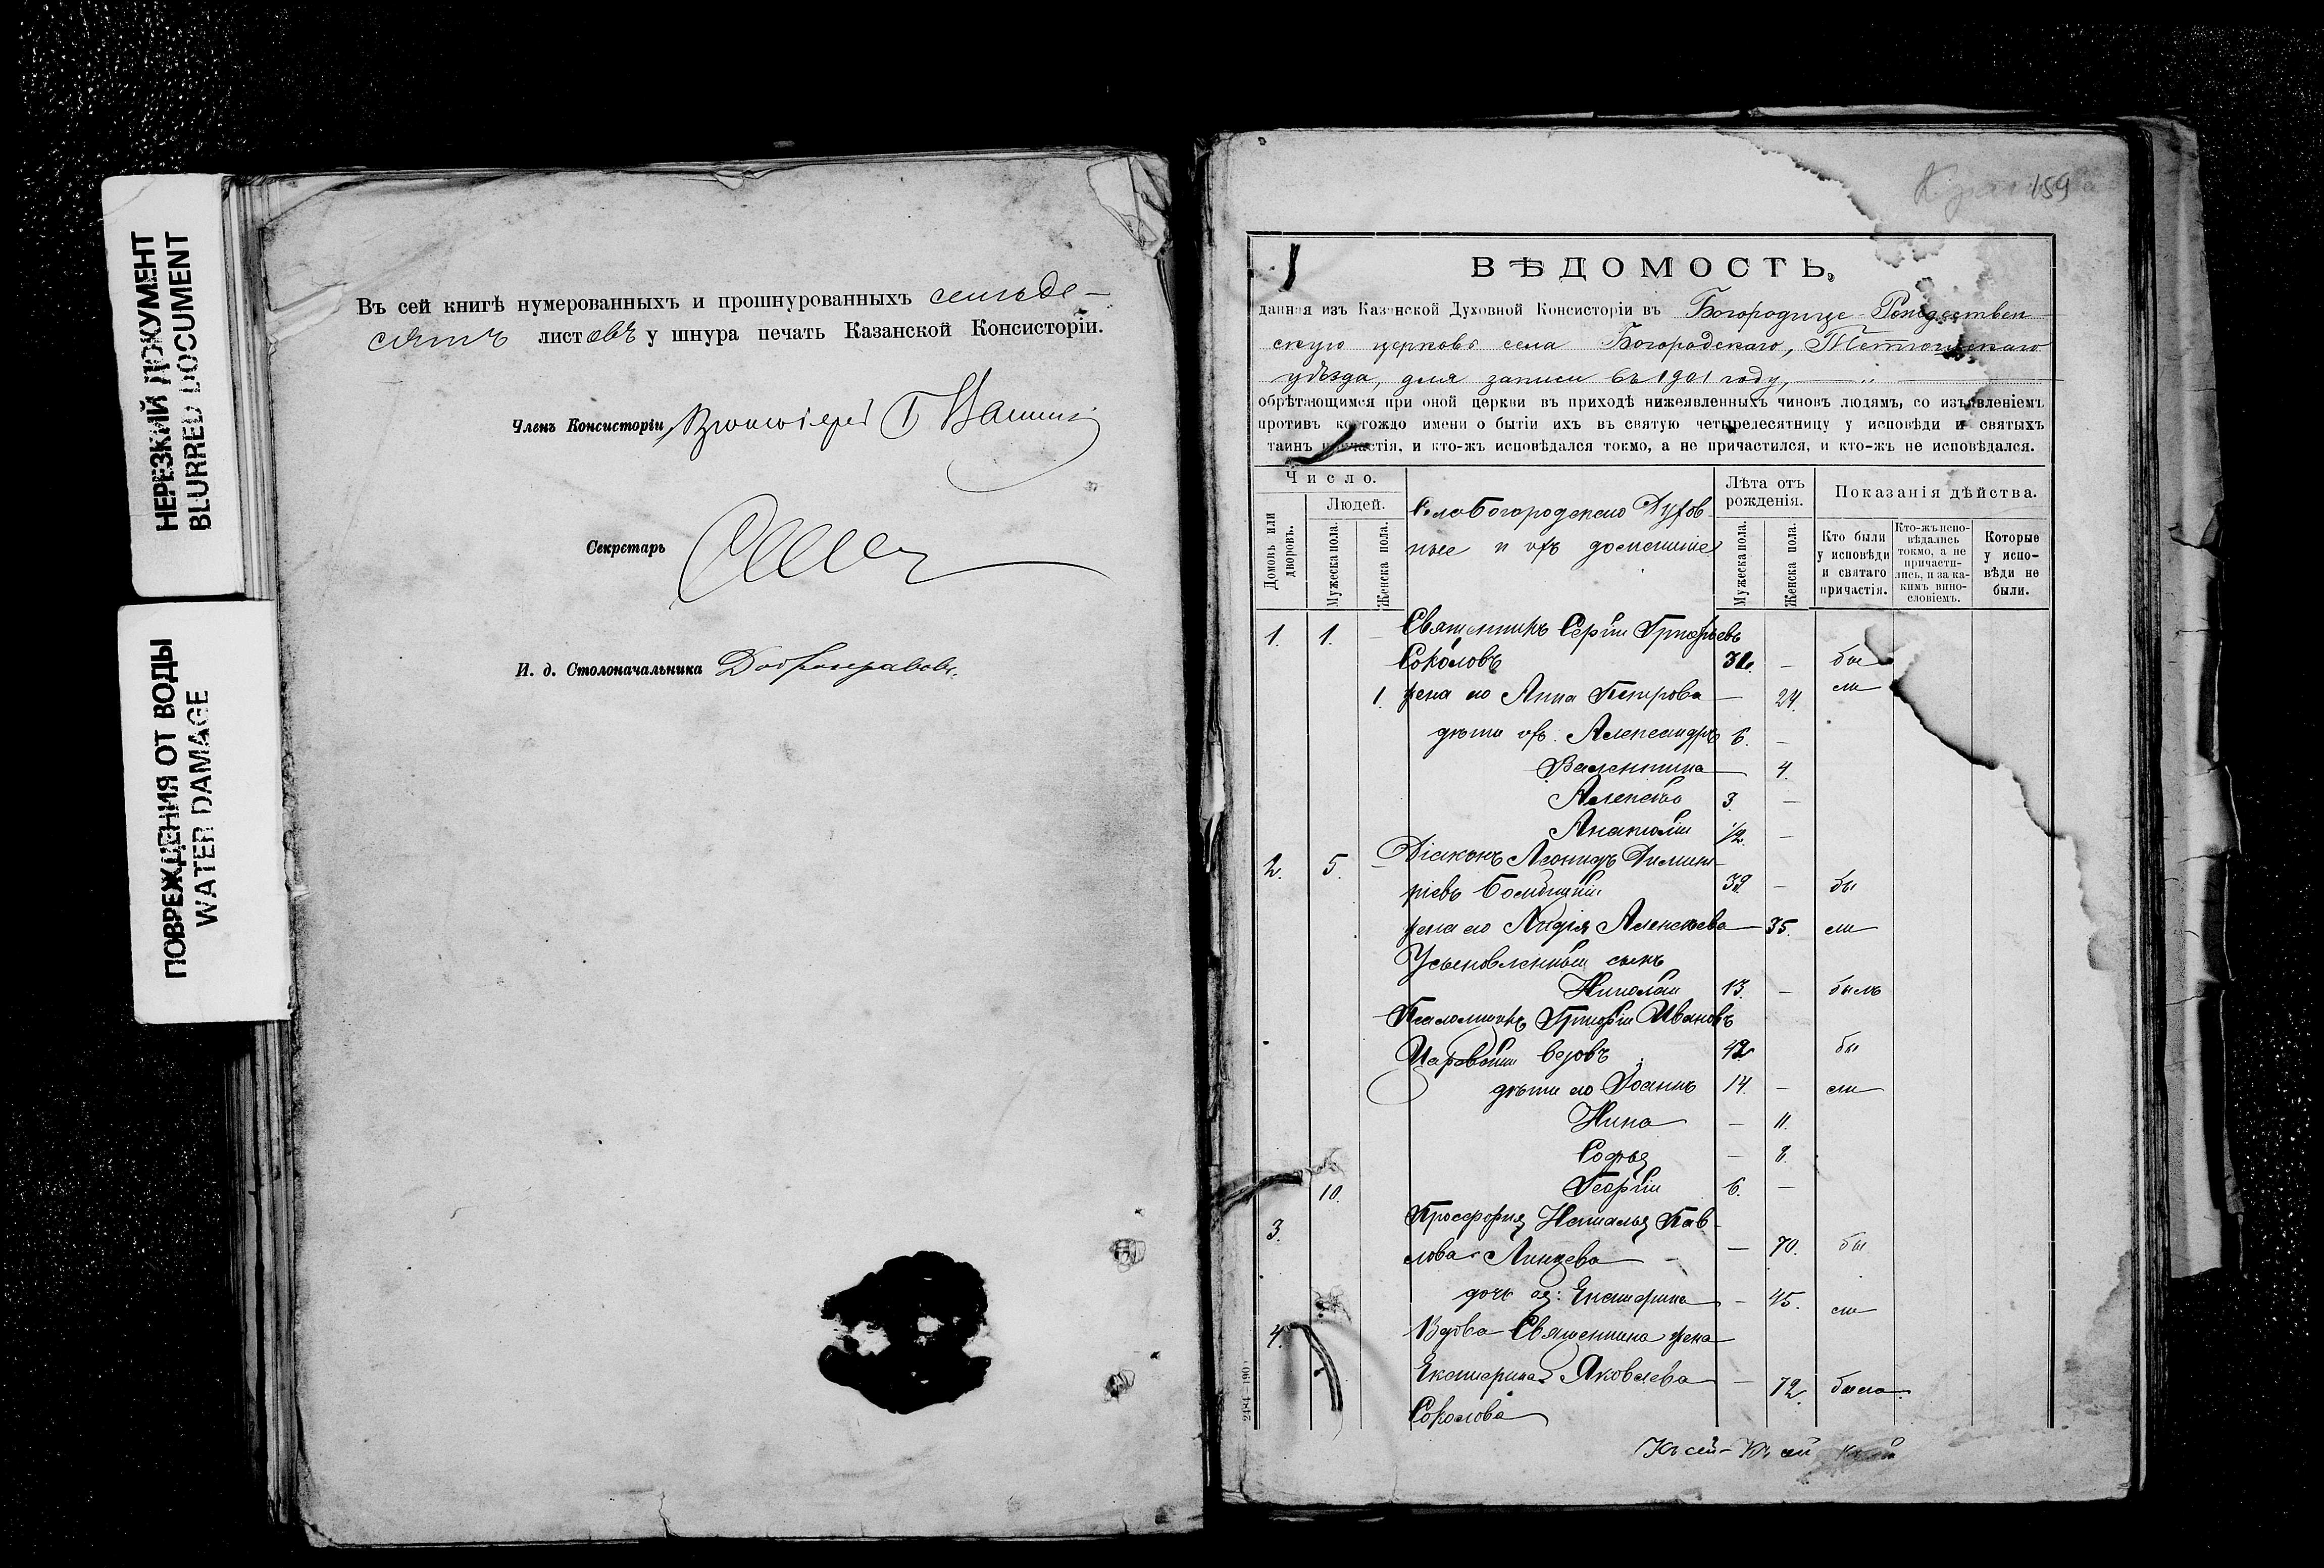 НЕРЕЗКИЙ ДОКУМЕНТ
BLURRED DOCUMENT
ПОВРЕЖДЕНИЯ ОТ ВОДЫ
WATER DAMAGE
Въ сей книгѣ нумерованныхъ и прошнурованныхъ семьде-
сятъ листовъ у шнура печать Казанской Консисторіи.
Членъ Консисторіи, Протоіерей
Секретарь
И. д. Столоначальника Добронравовъ.
159
ВѢДОМОСТЬ,
данная изъ Казанской Духовной Консисторіи въ Богородице-Рождествен
скую церковь села Богородскаго, Тетюшскаго
уѣзда, для записи въ 1901 году,
обрѣтающимся при оной церкви въ приходѣ нижеявленныхъ чиновъ людямъ, со изъявленіемъ
противъ коегождо имени о бытіи ихъ въ святую четыредесятницу у исповѣди и святыхъ
таинъ причастія, и кто-жъ исповѣдался токмо, а не причастился, и кто-жъ не исповѣдался.
Число.
Людей.
Домовъ или дворовъ.
Мужеска пола.
Женска пола.
Село Богородское Духов-
ные и ихъ домашніе
Лѣта отъ рожденія.
Мужеска пола.
Женска пола.
Показанія дѣйства.
Кто были у исповѣди и святаго причастія.
Кто-жъ исповѣдались токмо, а не причастились, и за какимъ винословіемъ.
Которые у исповѣди не были.
1. 1. — Священникъ Сергій Григорьевъ
Соколовъ 32. — бы
1. жена его Анна Петрова — 24. ли
дѣти ихъ: Александръ 6. —
Валентина — 4.
Алексѣй 3. —
Анатолій 1/2. —
2. 5. — Діаконъ Леонидъ Димит-
ріевъ 39. — бы
жена его Лидія Алексѣева — 35. ли
Усыновленный сынъ
Николай 13. — былъ
Псаломщикъ Григорій Ивановъ
вдовъ 42 бы
дѣти его Іоаннъ 14. — ли
Нина — 11.
Софья — 8.
10. Георгій 6. —
3. Просфорня Наталья Пав-
лова — 70. бы
дочь ея: Екатерина — 45. ли
4. Вдова Священника жена
Екатерина Яковлева — 72. была.
Соколова
2484—190
Къ сей - Къ сей